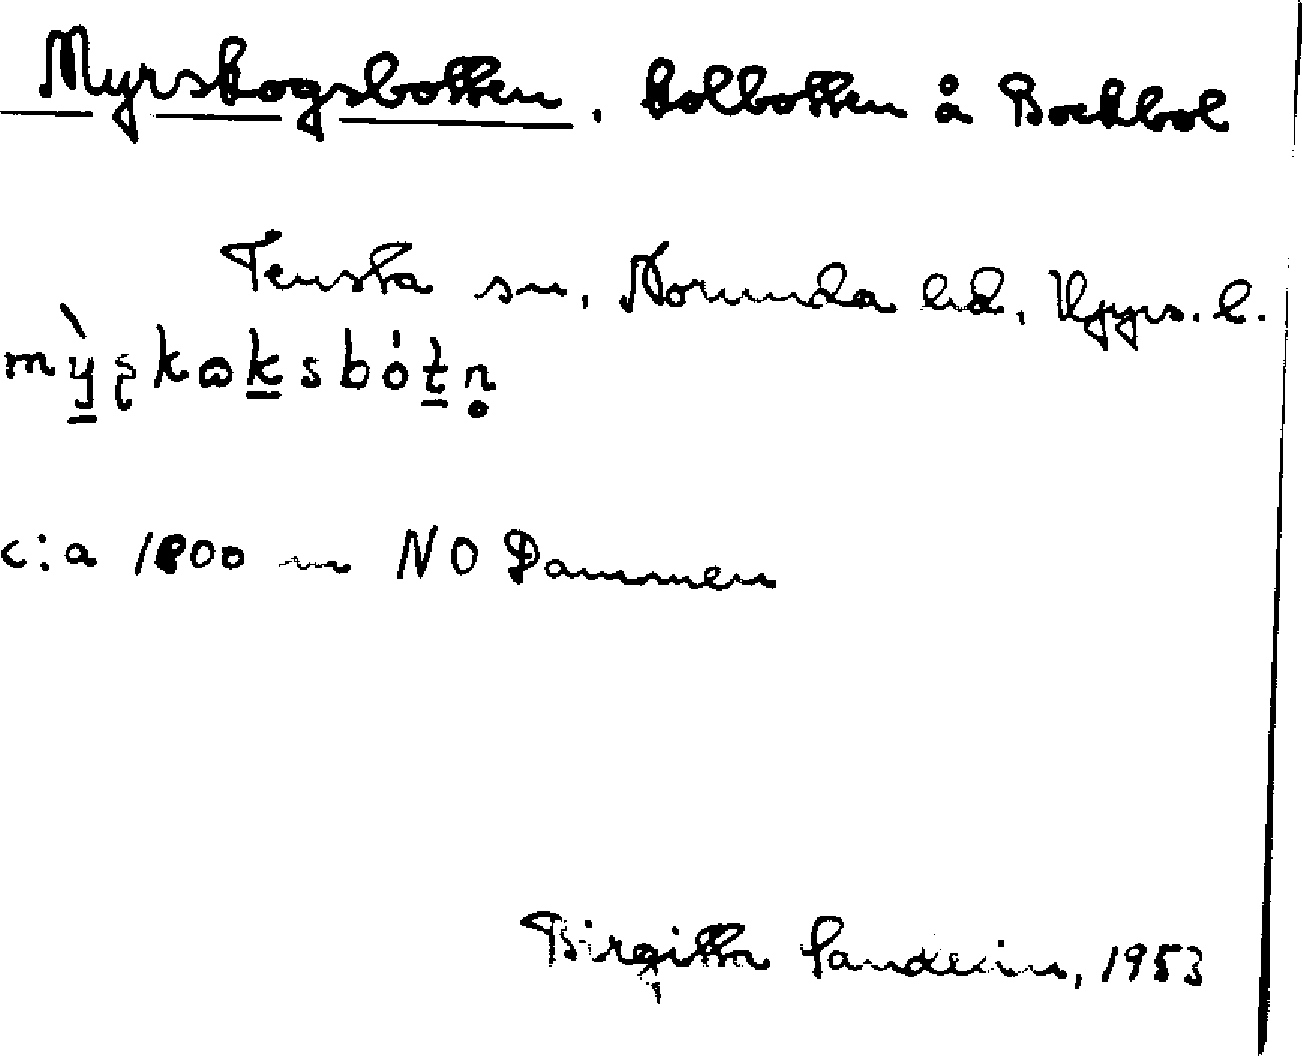 Myrskogsbotten, kolbotten å Bockbol
Tensta sn, Norunda hd, Upps. l.
mỳʂkɷksbótn̥
c:a 1800 m NO Dammen
Birgitta 1953